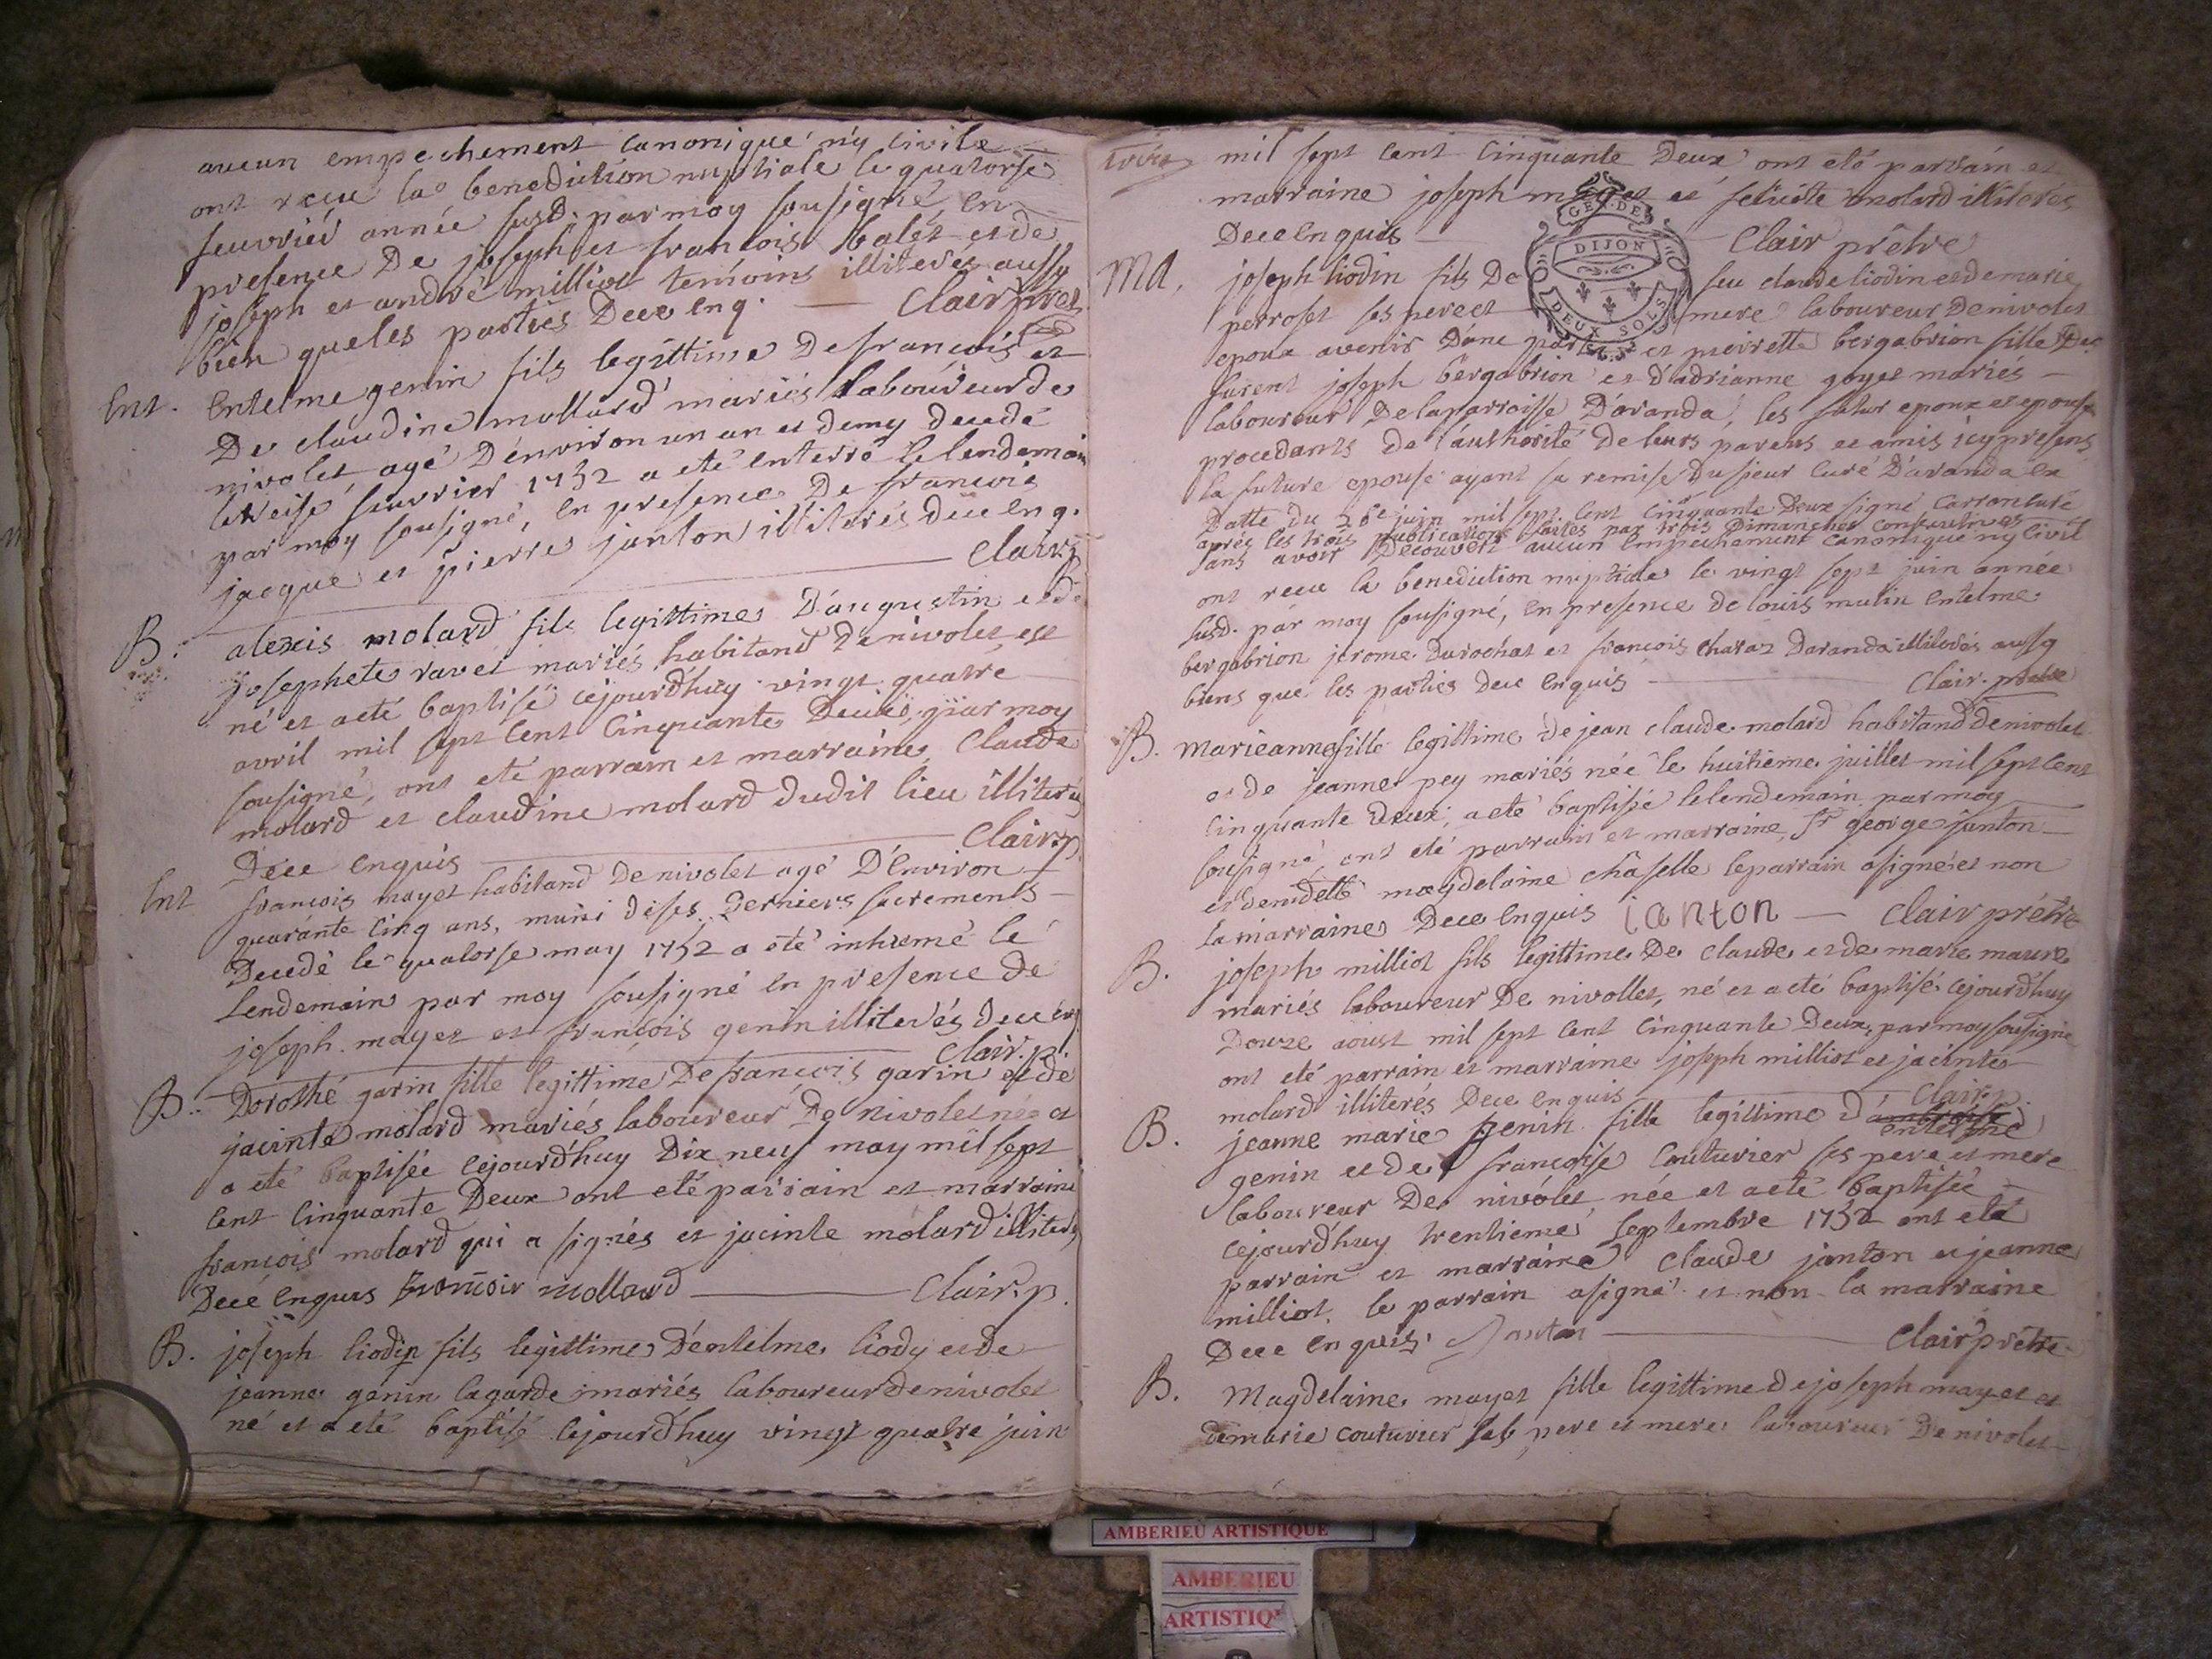 aucun empechement canonique ny civile
ont recu la benediction nuptiale le quatorse
feuvrier année susd. par moy sousigné, en
presence De joseph et francois et de
joseph et andré milliot temoins illiteres aussy
bien que les parties Dece enq. Clair pret.
Ent. Entelme genin fils legittime De francois et
De claudine mollard mariés laboureur de
nivolet, agé D'environ un an et demy decedé
le treise feuvrier 1752 a eté enterré le lendemain
par moy sousigné, en presence De francois
jacque et pierre janton illiterés dece enq.
Clair.p
B. alexis molard fils legittime D'augustin et de
josephete ravet mariés habitand De nivolet, est
né et a eté baptisé cejourd'huy vingt quatre
avril mil sept cent cinquante Deux, par moy
sousigné, ont eté parrain et marraine, Claude
molard et claudine molard dudit lieu illiterés
Dece enquis Clair.p.
Ent francois mayet habitand De nivolet agé D'environ
quarante cinq ans, muni de ses Derniers sacrements
Decedé le quatorse may 1752 a eté inhumé le
Lendemain par moy sousigné en presence de
joseph mayet et francois genin illiterés dece enq
Clair.p.
B. Dorothé garin fille legittime De francois garin et de
jacinte molard mariés laboureur De nivolet née et
a eté baptisée cejourd'huy Dix neuf may mil sept
cent cinquante Deux ont eté parrain et marraine
francois molard qui a signés et jacinte molard illiterés
Dece enquis francoir mollard Clair.p.
B. joseph liodin fils legittime D'entelme liody et de
jeanne genin lagarde mariés laboureur de nivolet
né et a eté baptisé cejourd'huy vingt quatre juin
mil sept cent cinquante Deux ont eté parrain et
marraine joseph mayet et feliciste molard illiterés
Dece enquis Clair prêtre
GEN. DE DIJON
DEUX SOLS
Ma. joseph liodin fils De feu claude liodin et de marie
perroset ses pere et mere laboureur De nivolet
epoux avenir D'une part et pierrette bergabrion fille Des
furent joseph bergabrion et D'adrianne goyet mariés
laboureur De la parroisse D'aranda, les futur epoux et epouse
procedants de l'authorité De leurs parens et amis icy presens
la future epouse ayant sa remise Du sieur curé D'aranda en
Datte du 26e juin mil sept cent cinquante Deux signé Carron curé
aprés les trois publications faites par trois Dimanches consecutives
sans avoir Decouvert aucun empechement canonique ny civil
ont recu la benediction nuptiale le vingt sept juin année
susd. par moy sousigné, en presence de louis mulin entelme
bergabrion jerome Durochat et francois charat D'aranda illiterés aussy
biens que les parties dece enquis Clair. prêtre
B. Marieanne fille legittime De jean claude molard habitand de nivolet
et de jeanne pey mariés née le huitieme juillet mil sept cent
cinquante Deux, a eté baptisée le lendemain par moy
sousigné, ont eté parrain et marraine, Sr george janton
et demelle magdelaine châselle le parrain a signé et non
la marraine Dece enquis ianton Clair prêtre
B. joseph milliot fils legittime De claude et de marie maure
mariés laboureur De nivollet, né et a eté baptisé cejourd'huy
Douze aoust mil sept cent cinquante Deux, par moy sousigné
ont eté parrain et marraine joseph milliot et jacinte
molard illiterés Dece enquis Clair.p.
B. jeanne marie genin fille legittime D'entelme
genin et de francoise couturier ses pere et mere
laboureur De nivolet, née et a eté baptisée
cejourd'huy trentieme septembre 1752 ont eté
parrain et marraine claude janton et jeanne
milliot. le parrain a signé et non la marraine
Dece enquis. Janton Clair prêtre
B. Magdelaine mayet fille legittime de joseph mayet et
de marie couturier ses pere et mere laboureur De nivolet
AMBERIEU ARTISTIQUE
AMBERIEU
ARTISTIQ